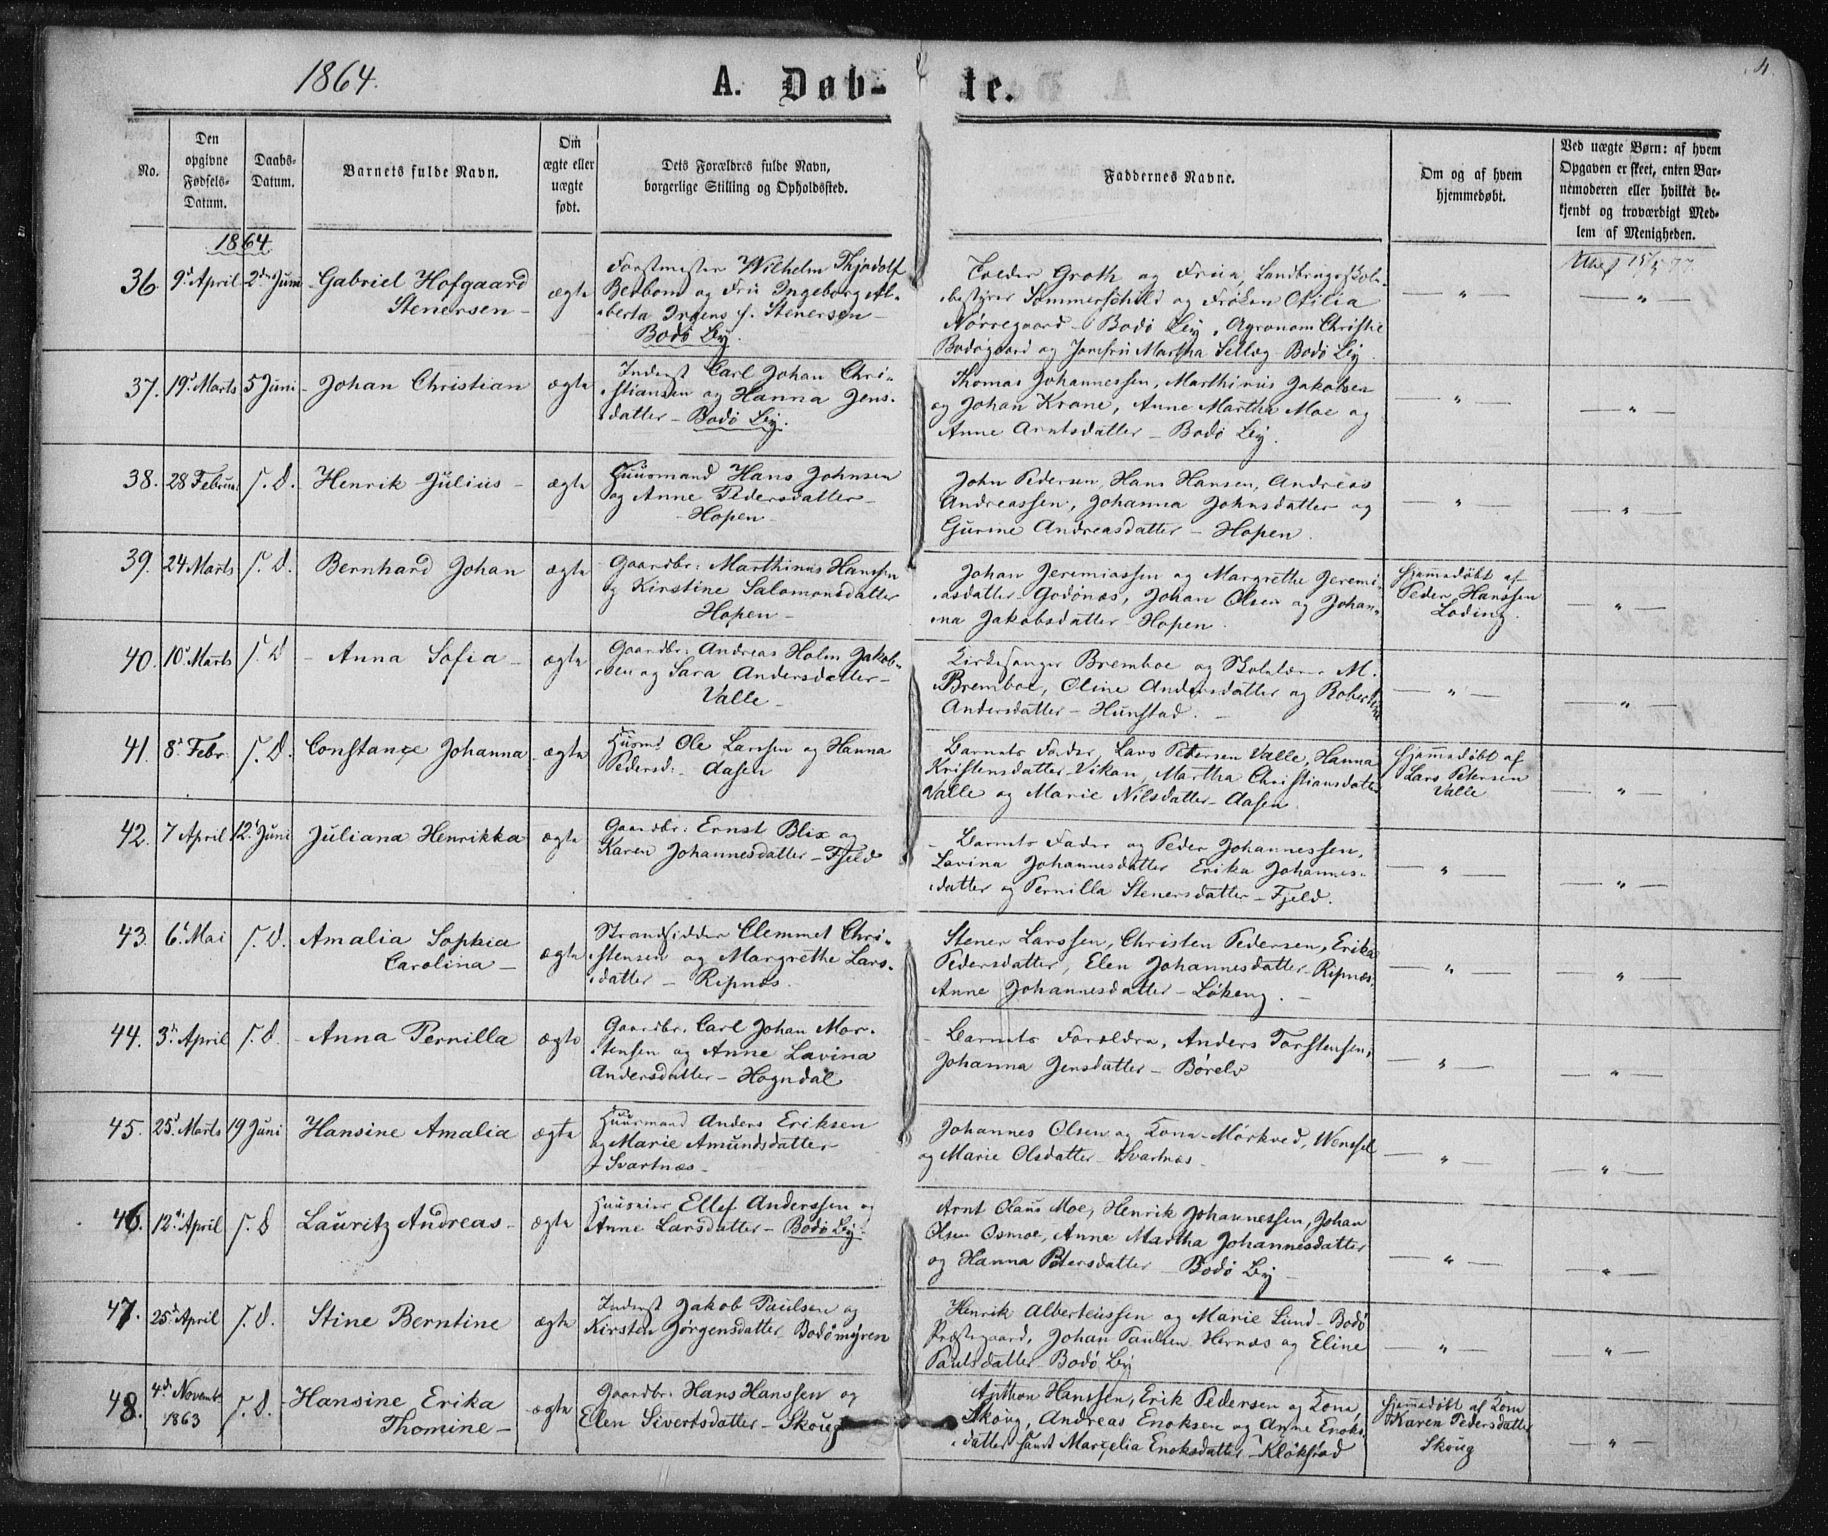 1864.
A. Døb-
te.
4.
No.
Den opgivne Fødsels-Datum.
Daabs-Datum.
Barnets fulde Navn.
Om ægte eller uægte født.
Dets Forældres fulde Navn,
borgerlige Stilling og Opholdssted.
Faddernes Navne.
Om og af hvem
hjemmedøbt.
Ved uægte Børn: af hvem
Opgaven er skeet, enten Bar-
nemoderen eller hvilket be-
kjendt og troværdigt Med-
lem af Menigheden.
1864
36 9d April 2den Juni Gabriel Hofgaard
Stenersen -
ægte
Forstmester Wilhelm Thjodolf
Bebom og Fru Ingeborg Al-
berta Irgens f. Stenersen -
Bodø By.
Tolder Groth og Frue, Landbrugsskole-
bestyrer Sommerschild og Frøken Otilia
Nørregaard - Bodø By, Agronom Christie
Bodøgaard og Jomfru Martha Sellæg Bodø By.
— " —
— " —
37. 19d Marts 5 Juni - Johan Christian
ægte
Inderst Carl Johan Chri-
stiansen og Hanna Jens-
datter - Bodø By.
Thomas Johannessen, Marthinus Jakobsen
og Johan Krane, Anne Martha Moe og
Anne Arntsdatter - Bodø By.
— " —
— " —
38. 28 Februar s. D. Henrik Julius -
ægte
Huusmand Hans Johnsen
og Anne Pedersdatter -
- Hopen -
John Pedersen, Hans Hansen, Andreas
Andreassen, Johanna Johnsdatter og
Gurine Andreasdatter - Hopen.
— " —
— " —
39. 24 Marts s. D. Bernhard Johan
ægte
Gaardbr: Marthinus Hanssen
og Kirstine Salomonsdatter
Hopen -
Johan Jeremiassen og Margrethe Jeremi-
asdatter Godønæs, Johan Olsen og Johan-
na Jakobsdatter - Hopen.
Hjemmedøbt af
Peder Hanssen
Loding.
— " —
40. 10d Marts s. D - Anna Sofia -
ægte
Gaardbr: Andreas Holm Jakob-
sen og Sara Andersdatter -
Valle -
Kirkesanger Bremboe og Skolelærer M.
Bremboe, Oline Andersdatter og Robertine
Andersdatter - Hunstad. -
— " —
— " —
41. 8d Febr. s. D. Constance Johanna
ægte
Husmd Ole Larssen og Hanna
Pedersd: - Aasen
Barnets Fader, Lars Petersen Valle, Hanna
Kristensdatter Vikan, Martha Christiansdatter
Valle og Marie Nilsdatter - Aasen.
Hjemmedøbt af
Lars Petersen
Valle
— " —
42. 7 April 12d Juni Juliana Henrikka
ægte
Gaardbr: Ernst Blix og
Karen Johannesdatter - Fjeld
- Barnets Fader og Peder Johannessen,
Lavina Johannesdatter Erika Johannes-
datter og Pernilla Stenersdatter - Fjeld.
— " —
— " —
43. 6d Mai s. D. Amalia Sophia
Carolina -
ægte
Strandsidder Clemmet Chri-
stensen og Margrethe Lars-
datter - Ripnæs.
Stener Larssen, Christen Pedersen, Erika
Pedersdatter, Elen Johannesdatter Ripnæs,
Anne Johannesdatter - Løkeng. -
— " —
— " —
44. 3d April s. D. - Anna Pernilla
ægte
Gaardbr. Carl Johan Mor-
tensen og Anne Lavina
Andersdatter - Hogndal
- Barnets Forældre, Anders Torstensen,
Johanna Jensdatter - Børelv
— " —
— " —
45. 25d Marts 19 Juni Hansine Amalia
ægte
Huusmand Anders Eriksen
og Marie Amundsdatter
Svartnæs -
Johannes Olsen og Kone - Mørkved, Wenssel
og Marie Olsdatter - Svartnæs -
— " —
— " —
46. 12d April s. D Lauritz Andreas -
ægte
Huuseier Ellef Anderssen og
Anne Larsdatter - Bodø By.
Arnt Olaus Moe, Henrik Johannessen, Johan
Olsen Osmoe, Anne Martha Johannesdatter
og Hanna Petersdatter - Bodø By -
— " —
— " —
47. 25d April s. D. Stine Berntine
ægte
Inderst Jakob Paulsen og
Kirsten Jørgensdatter Bodømyren
Henrik Alberteussen og Marie Lund - Bodø
Præstegaard, Johan Paulsen Hernæs og Eline
Paulsdatter - Bodø By
— " —
— " —
48. 4d Novembr 1863 s. D. Hansine Erika
Thomine -
ægte
Gaardbr: Hans Hanssen og
Elen Sivertsdatter - Skoug
Anthon Hanssen, Erik Pedersen og Kone
Skoug, Andreas Enoksen og Anne Enoks-
datter samt Marcelia Enoksdatter - Kløkstad
Hjemmedøbt af Kone
Karen Pedersdatter
Skoug
— " —